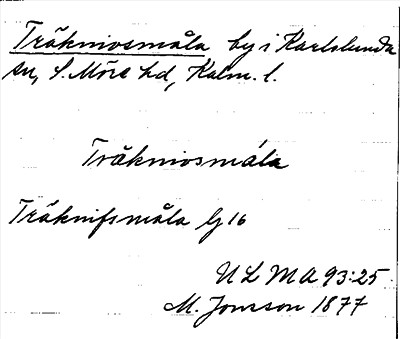 Träknivsmåla by i Karlslunda
sn, S. Möre hd, Kalm. l.
Träknivsmåla
Träknifsmåla G 16
ULMA 93:25
M. Jonsson 1877